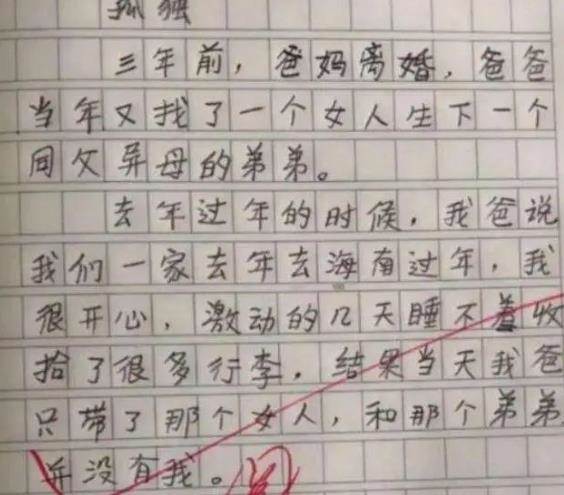 孤独
三年前，爸妈离婚，爸爸
当年又找了一个女人生下一个
同父异母的弟弟。
去年过年的时候，我爸说
我们一家去年去海南过年，我
很开心，激动的几天睡不着收
拾了很多行李，结果当天我爸
只带了那个女人，和那个弟弟
并没有我。